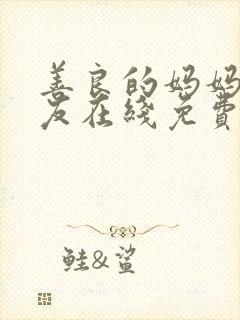 善良的妈妈
友在线免费
鲑&鲨